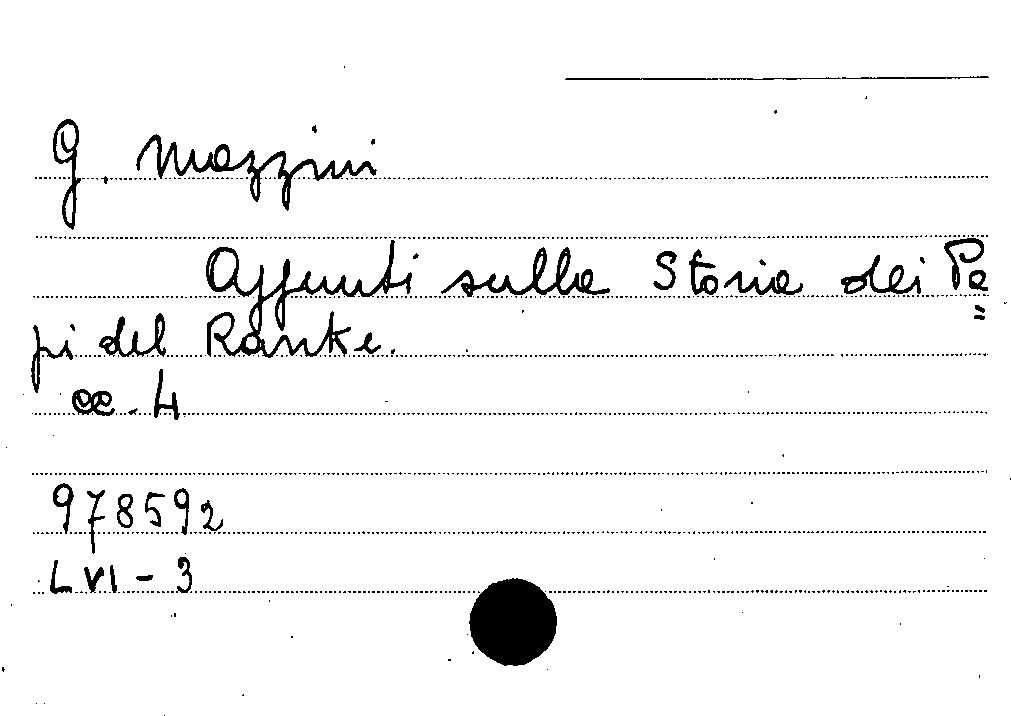 G. Mazzini
Appunti sulla Storia dei Pa=
pi del Ranke.
cc. 4
978592
LVI - 3